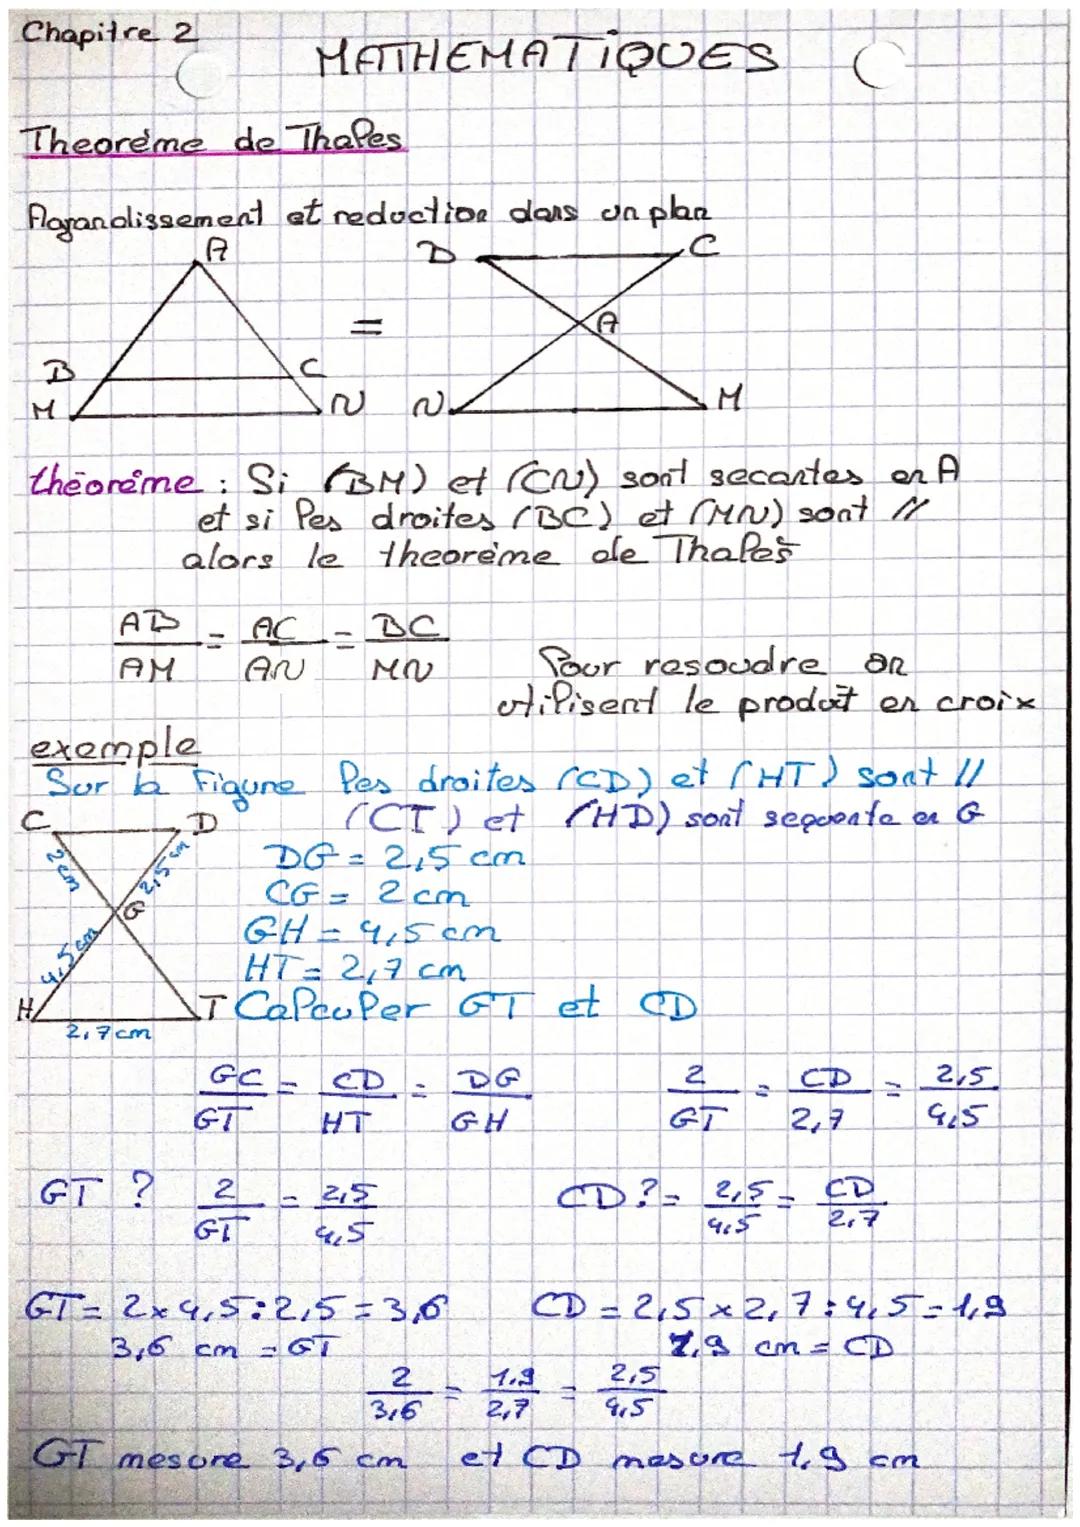 Chapitre 2
MATHEMATiQUES
Theoréme de Thales
Agrandissement et reduction dans un plan
A
B C
M N
=
D C
A
N M
théoréme : Si (BM) et (CN) sont secantes en A
et si les droites (BC) et (MN) sont //
alors le theoréme de Thales
AB/AM = AC/AN = BC/MN
Pour resoudre on
utilisent le produit en croix
exemple
Sur la Figure les droites (CD) et (HT) sont //
(CT) et (HD) sont sequente en G
C D
2 cm 2,5 cm
G
4,5 cm
H T
2,7 cm
DG = 2,5 cm
CG = 2 cm
GH = 4,5 cm
HT = 2,7 cm
Calculer GT et CD
GC/GT = CD/HT = DG/GH 2/GT = CD/2,7 = 2,5/4,5
GT ? 2/GT = 2,5/4,5 CD ? = 2,5/4,5 = CD/2,7
GT = 2 x 4,5 : 2,5 = 3,6 CD = 2,5 x 2,7 : 4,5 = 1,9
3,6 cm = GT 1,9 cm = CD
2/3,6 = 1,9/2,7 = 2,5/4,5
GT mesure 3,6 cm et CD mesure 1,9 cm